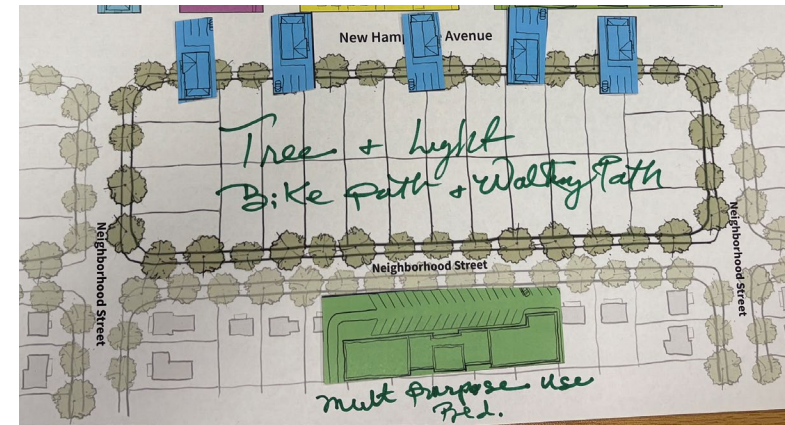 New Hamp Avenue
Tree + Light
Bike Path + Walking Path
Neighborhood Street
Neighborhood Street
Neighborhood Street
Mult Purpose Use